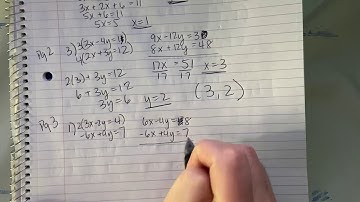 3x + 2x + 6 = 11
5x + 6 = 11
5x = 5 x = 1
Pg 2 3) 3(3x - 4y = 1
4(2x + 3y = 12)
9x - 12y = 3
8x + 12y = 48
17x = 51 x = 3
17 17
2(3) + 3y = 12
6 + 3y = 12
3y = 6 y = 2
(3, 2)
Pg 3 1) 2(3x - 2y = 4)
-6x + 4y = 7
6x - 4y = 8
-6x + 4y = 7